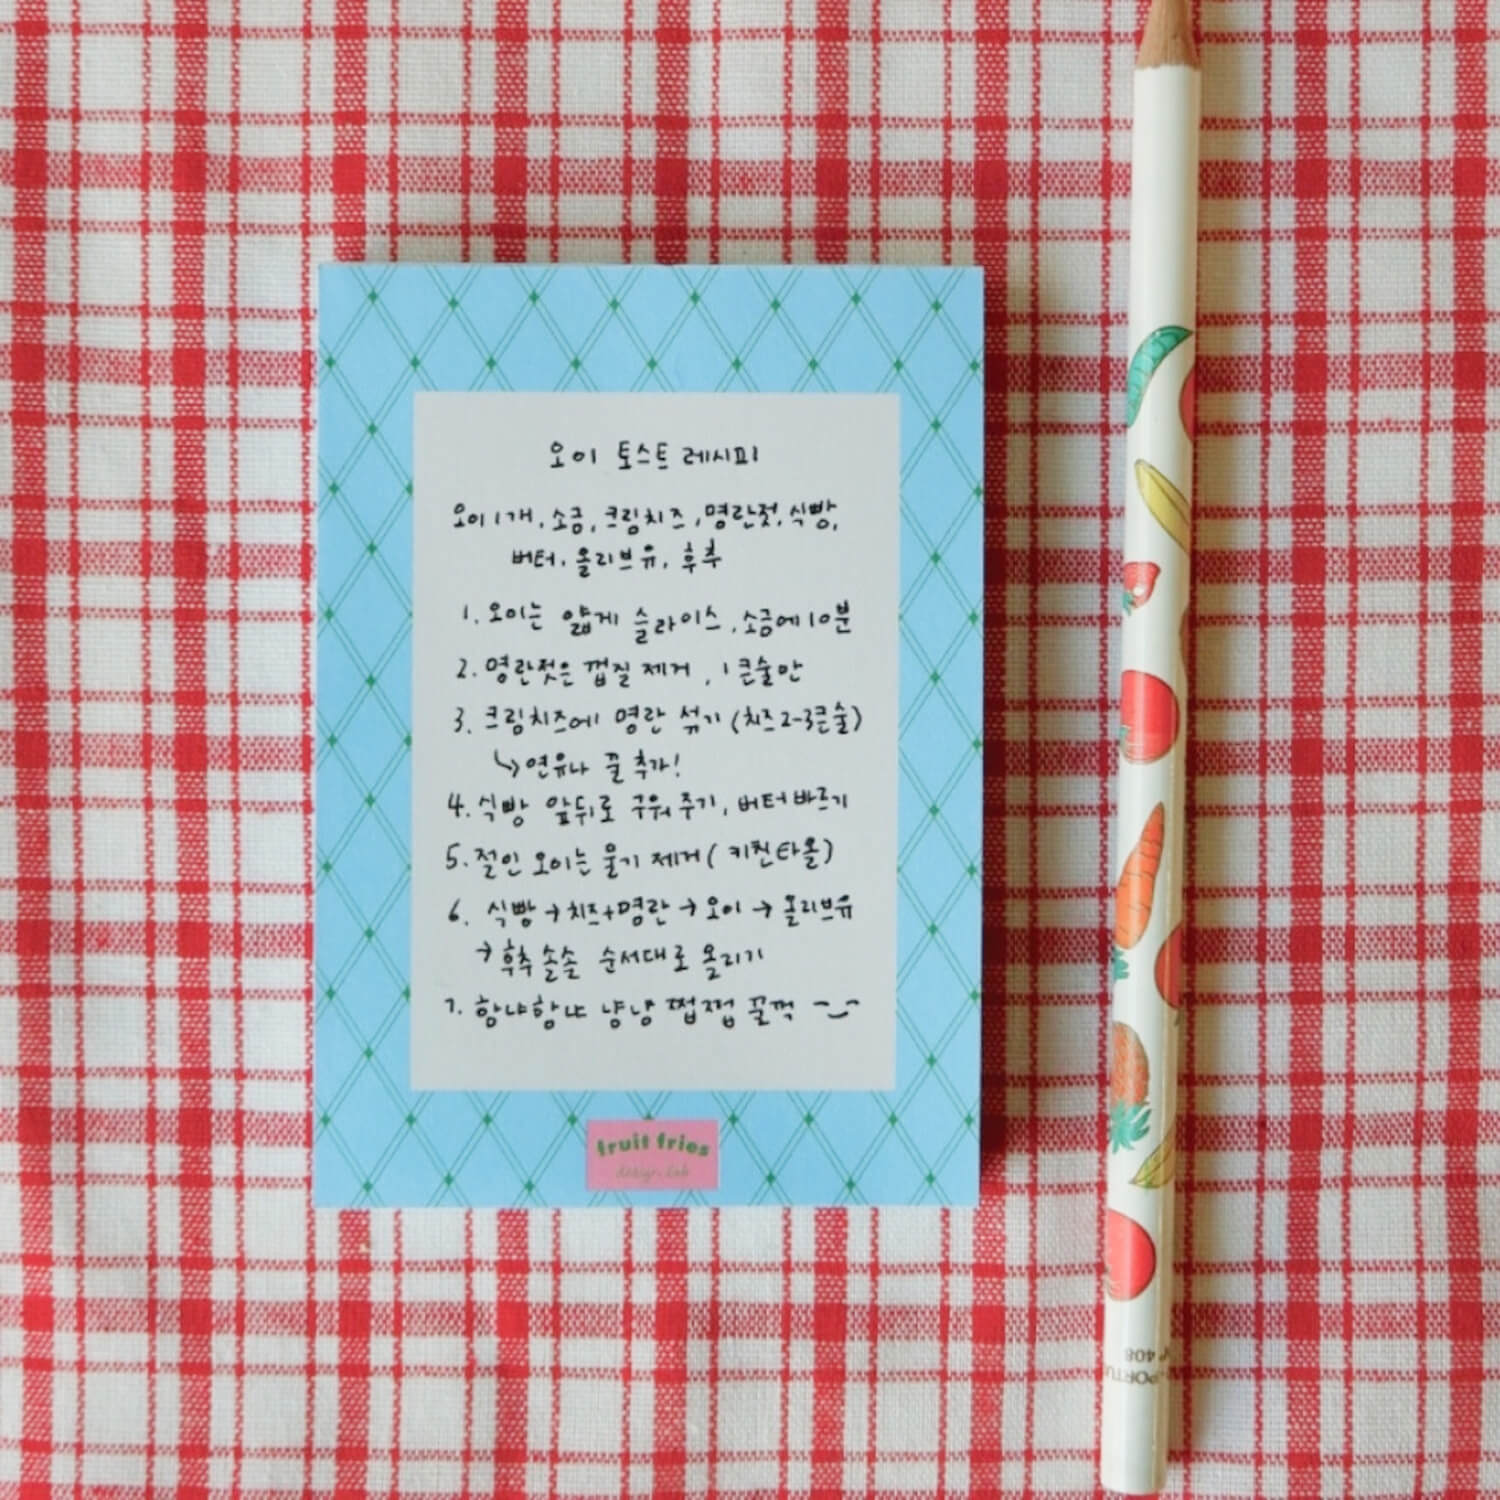 오이 토스트 레시피
오이 1개, 소금, 크림치즈, 명란젓, 식빵,
버터, 올리브유, 후추
1. 오이는 얇게 슬라이스, 소금에 10분
2. 명란젓은 껍질 제거, 1큰술만
3. 크림치즈에 명란 섞기 (치즈 2-3큰술)
↳ 연유나 꿀 추가!
4. 식빵 앞뒤로 구워주기, 버터 바르기
5. 절인 오이는 물기 제거 (키친타올)
6. 식빵 → 치즈+명란 → 오이 → 올리브유
→ 후추 솔솔 순서대로 올리기
7. 함냐함냐 냥냥 쩝쩝 꿀꺽
fruit fries
design lab
PORTU
N° 408